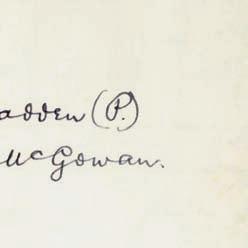 adden (P.)
McGowan.